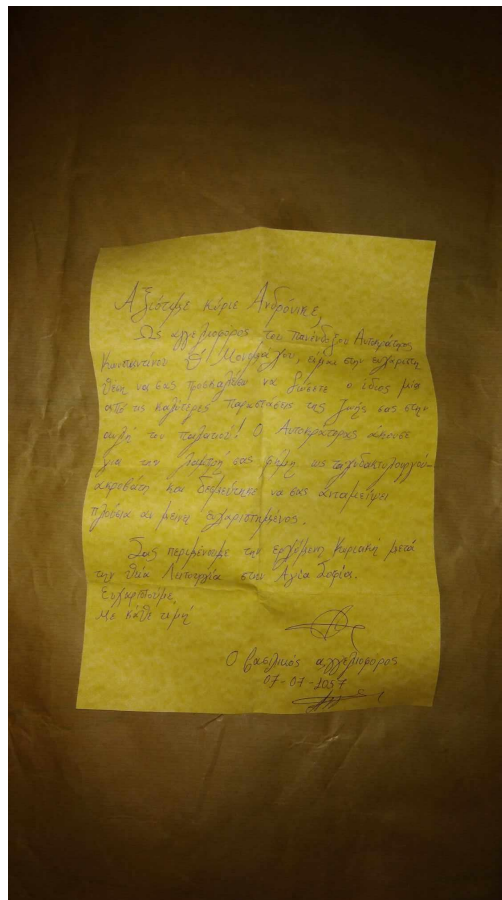 Αξιότιμε κύριε Ανδρόνικε,
Ως αγγελιοφόρος του πανένδοξου Αυτοκράτορα,
Κωνσταντίνου Θ' Μονομάχου, είμαι στην ευχάριστη
θέση να σας προσκαλέσω να δώσετε ο ίδιος μία
από τις καλύτερες παραστάσεις της ζωής σας στην
αυλή του παλατιού! Ο Αυτοκράτορας άκουσε
για την λαμπρή σας φήμη ως ταχυδακτυλουργού
ακροβάτη και δεσμεύτηκε να σας ανταμείψει
πλούσια αν μείνει ευχαριστημένος.
Σας περιμένουμε την ερχόμενη Κυριακή μετά
την Θεία Λειτουργία στην Αγία Σοφία.
Ευχαριστούμε
Με κάθε τιμή
Ο βασιλικός αγγελιοφόρος
07-07-1057